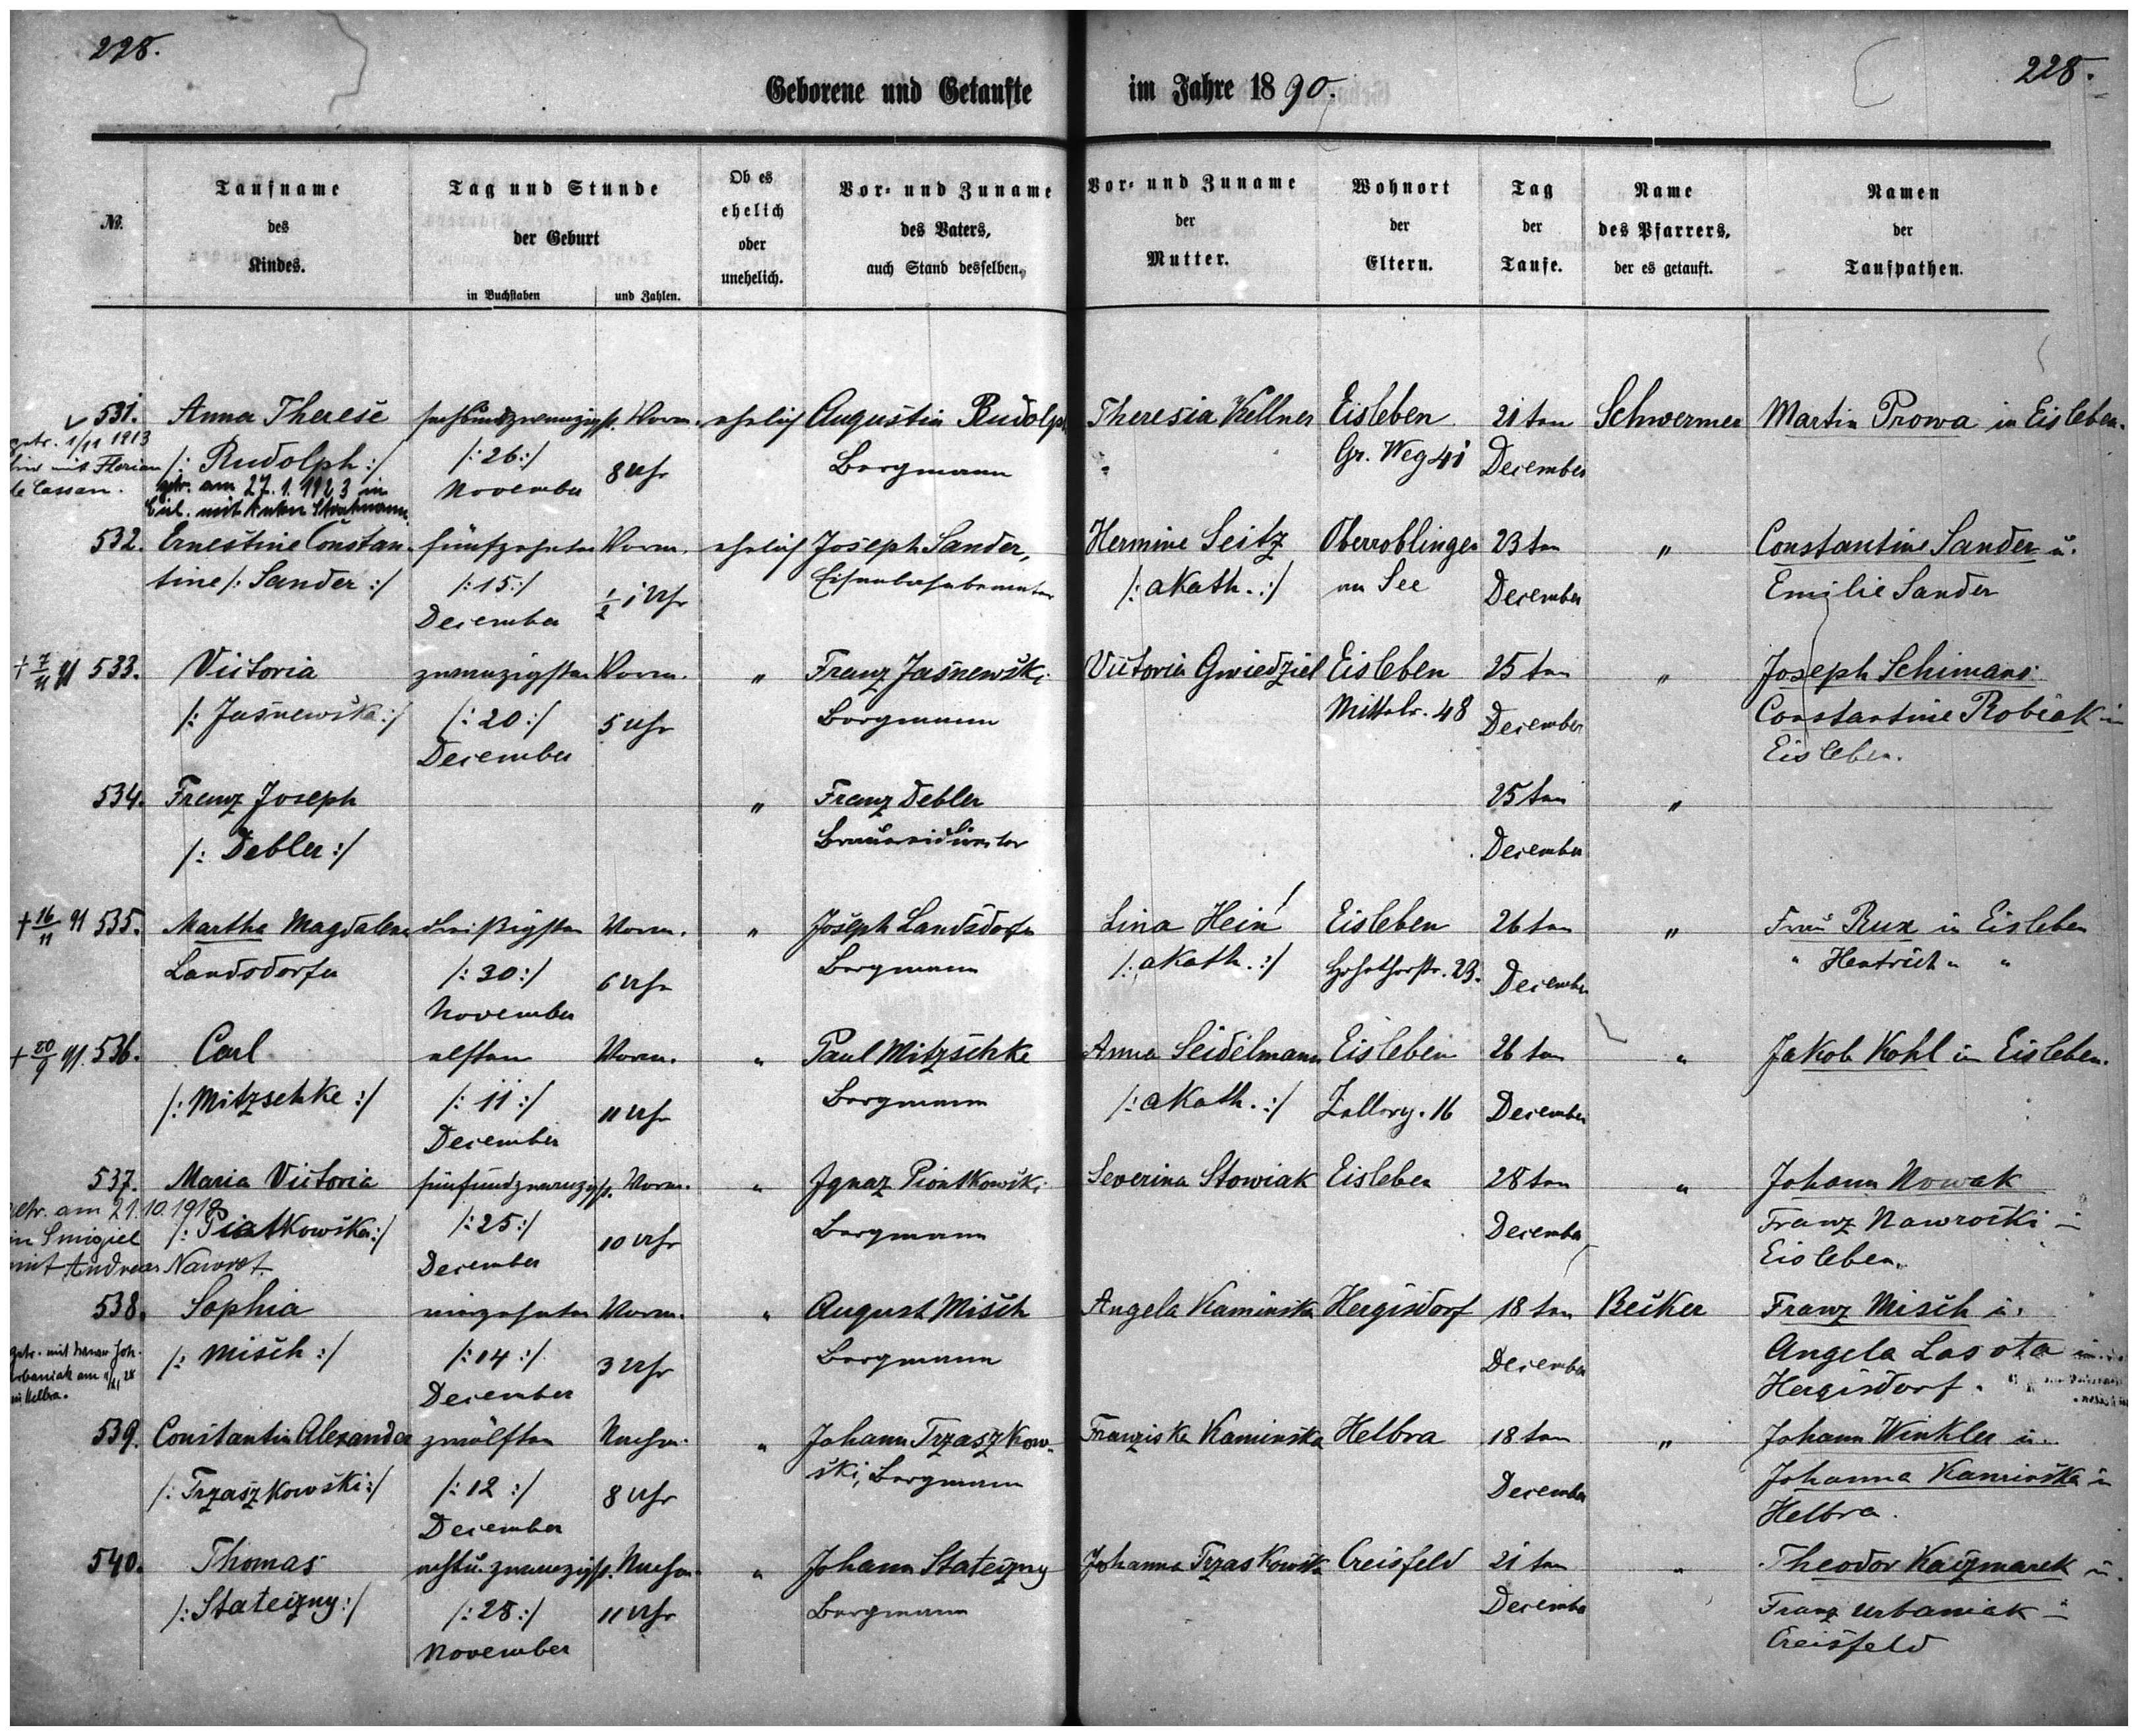 228.
228.
Geborene und Getaufte im Jahre 1890.
№.
Taufname des Kindes.
Tag und Stunde der Geburt
in Buchstaben
und Zahlen.
Ob es ehelich oder unehelich.
Vor- und Zuname des Vaters, auch Stand desselben.
Vor- und Zuname der Mutter.
Wohnort der Eltern.
Tag der Taufe.
Name des Pfarrers, der es getauft.
Namen der Taufpathen.
531. Anna Therese sechsundzwanzigst. Vorm. ehelich Augustin Rudolph Theresia Kellner Eisleben 21ten Schwermer Martin Prowa in Eisleben.
getr. 1/11 1913
/: Rudolph :/ /: 26 :/ 8 Uhr Bergmann Gr. Weg 41 December
mit Florian
November
getr. am 27. 1. 1923 in
Eisl. mit Anton
532. Ernestine Constan- fünfzehnten Vorm. ehelich Joseph Sander, Hermine Seitz Oberroblingen 23ten " Constantine Sander u.
tine /: Sander :/ /: 15 :/ ½ 1 Uhr Eisenbahnbeamter /: akath. :/ am See December Emilie Sander
December
† 7/11 91 533. Victoria zwanzigsten Vorm. " Franz Jasnewski Victoria Gwiedziel Eisleben 25ten " Joseph Schimans
/: Jasnewska :/ /: 20 :/ 5 Uhr Bergmann Mittelr. 48 December Constantine Robiak in
December Eisleben.
534. Franz Joseph " Franz Debler 25ten "
/: Debler :/ Brauereidirector December
† 16/11 91 535. Martha Magdalena dreißigsten Vorm. " Joseph Landsdorfer Lina Hein Eisleben 26ten " Frau Rux in Eisleben
Landsdorfer /: 30 :/ 6 Uhr Bergmann /: akath. :/ Hohethorstr. 23. December " Hentrich " "
November
† 20/9 91. 536. Carl elften Vorm. " Paul Mitzschke Anna Seidelmann Eisleben 26ten " Jakob Kohl in Eisleben.
/: Mitzschke :/ /: 11 :/ 11 Uhr Bergmann /: akath. :/ 16 December
December
537. Maria Victoria fünfundzwanzigst. Vorm. " Ignaz Piontkowski Severina Stowiak Eisleben 28ten " Johann Nowak
getr. am 21. 10. 1918
/: Piatkowska :/ /: 25 :/ 10 Uhr Bergmann December Franz Nawrocki in
in Smigiel
December Eisleben.
mit Andreas Nawrot.
538. Sophia vierzehnten Vorm. " August Misch Angela Kaminska Hergisdorf 18ten Becker Franz Misch u.
/: Misch :/ /: 14 :/ 3 Uhr Bergmann December Angela Lasota in
getr. mit Joh.
Urbaniak am 28
in Helbra.
December Hergisdorf.
539. Constantin Alexander zwölften Nachm. " Johann Trzaszkow- Franziska Kaminska Helbra 18ten " Johann Winkler u.
/: Trzaszkowski :/ /: 12 :/ 8 Uhr ski, Bergmann December Johanna Kaminska in
December Helbra.
540. Thomas achtu. zwanzigst. Nachm. " Johann Stateczny Johanna Trzaskowska Creisfeld 21ten " Theodor Kaczmarek u.
/: Stateczny :/ /: 28 :/ 11 Uhr Bergmann December Franz Urbaniak in
November Creisfeld